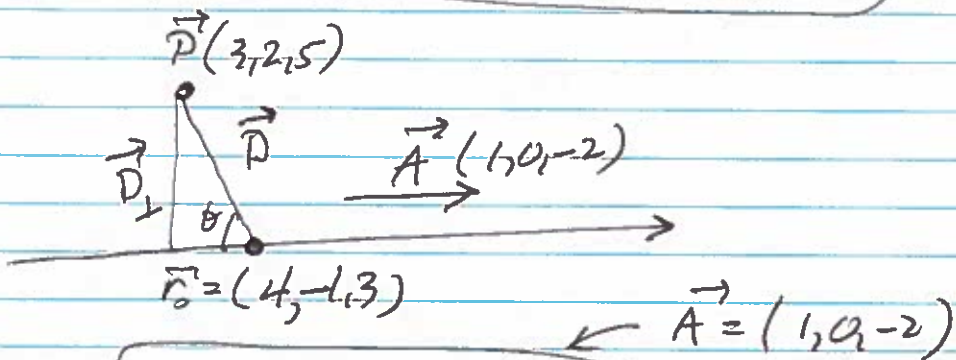 P⃗(3,2,5)
D⃗
A⃗ (1,0,-2)
D⃗⊥
θ
r⃗₀ = (4,-1,3)
A⃗ = (1,0,-2)